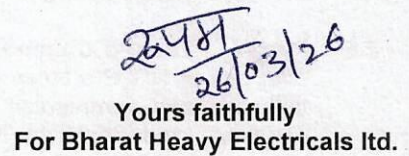 26/03/26
Yours faithfully
For Bharat Heavy Electricals ltd.